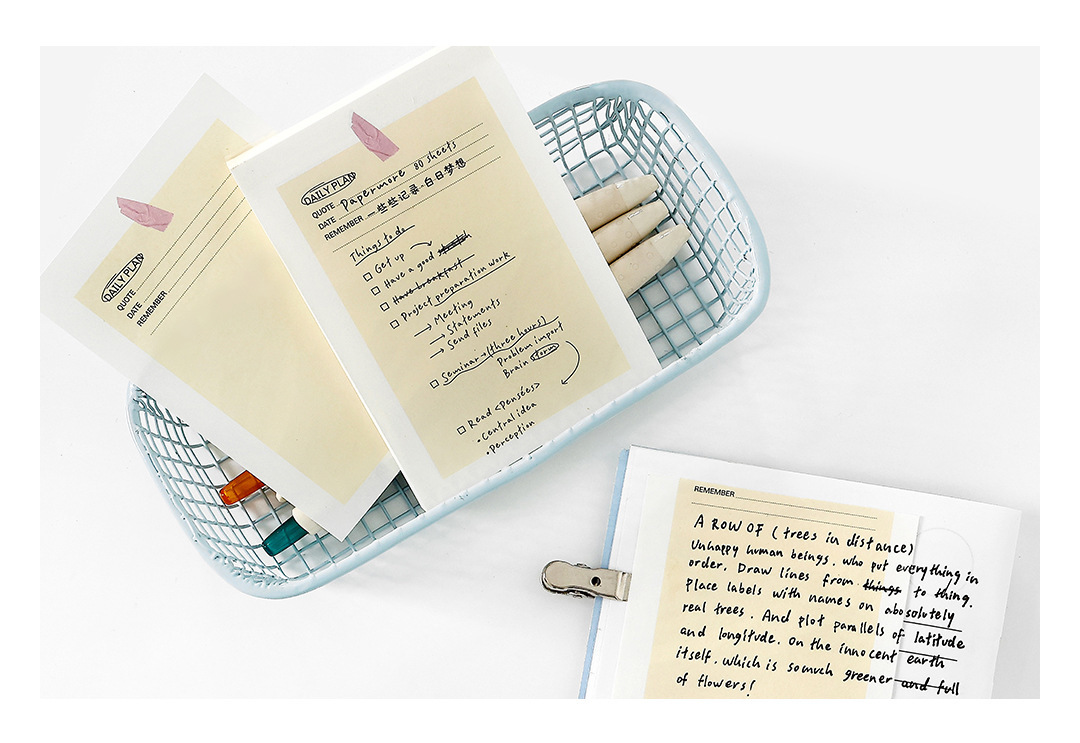 DAILY PLAN
QUOTE
DATE
REMEMBER
DAILY PLAN
QUOTE Papermore 80 sheets
DATE
REMEMBER 一些些记录·白日梦想
Things to do
Get up
Have a good
Have breakfast
Project preparation work
→ Meeting
→ Statements
→ Send files
Seminar → (three hours)
Problem import
Brain storm
Read <Pensées>
• Central idea
• Perception
REMEMBER
A ROW OF (trees in distance)
Unhappy human beings, who put everything in
order. Draw lines from things to thing.
Place labels with names on absolutely
real trees. And plot parallels of latitude
and longitude. On the innocent earth
itself, which is so much greener and full
of flowers!